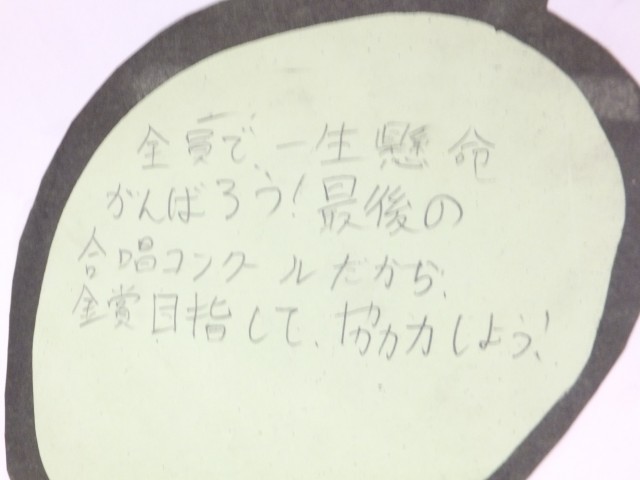 全員で、一生懸命
がんばろう!最後の
合唱コンクールだから、
金賞目指して、協力しよう!